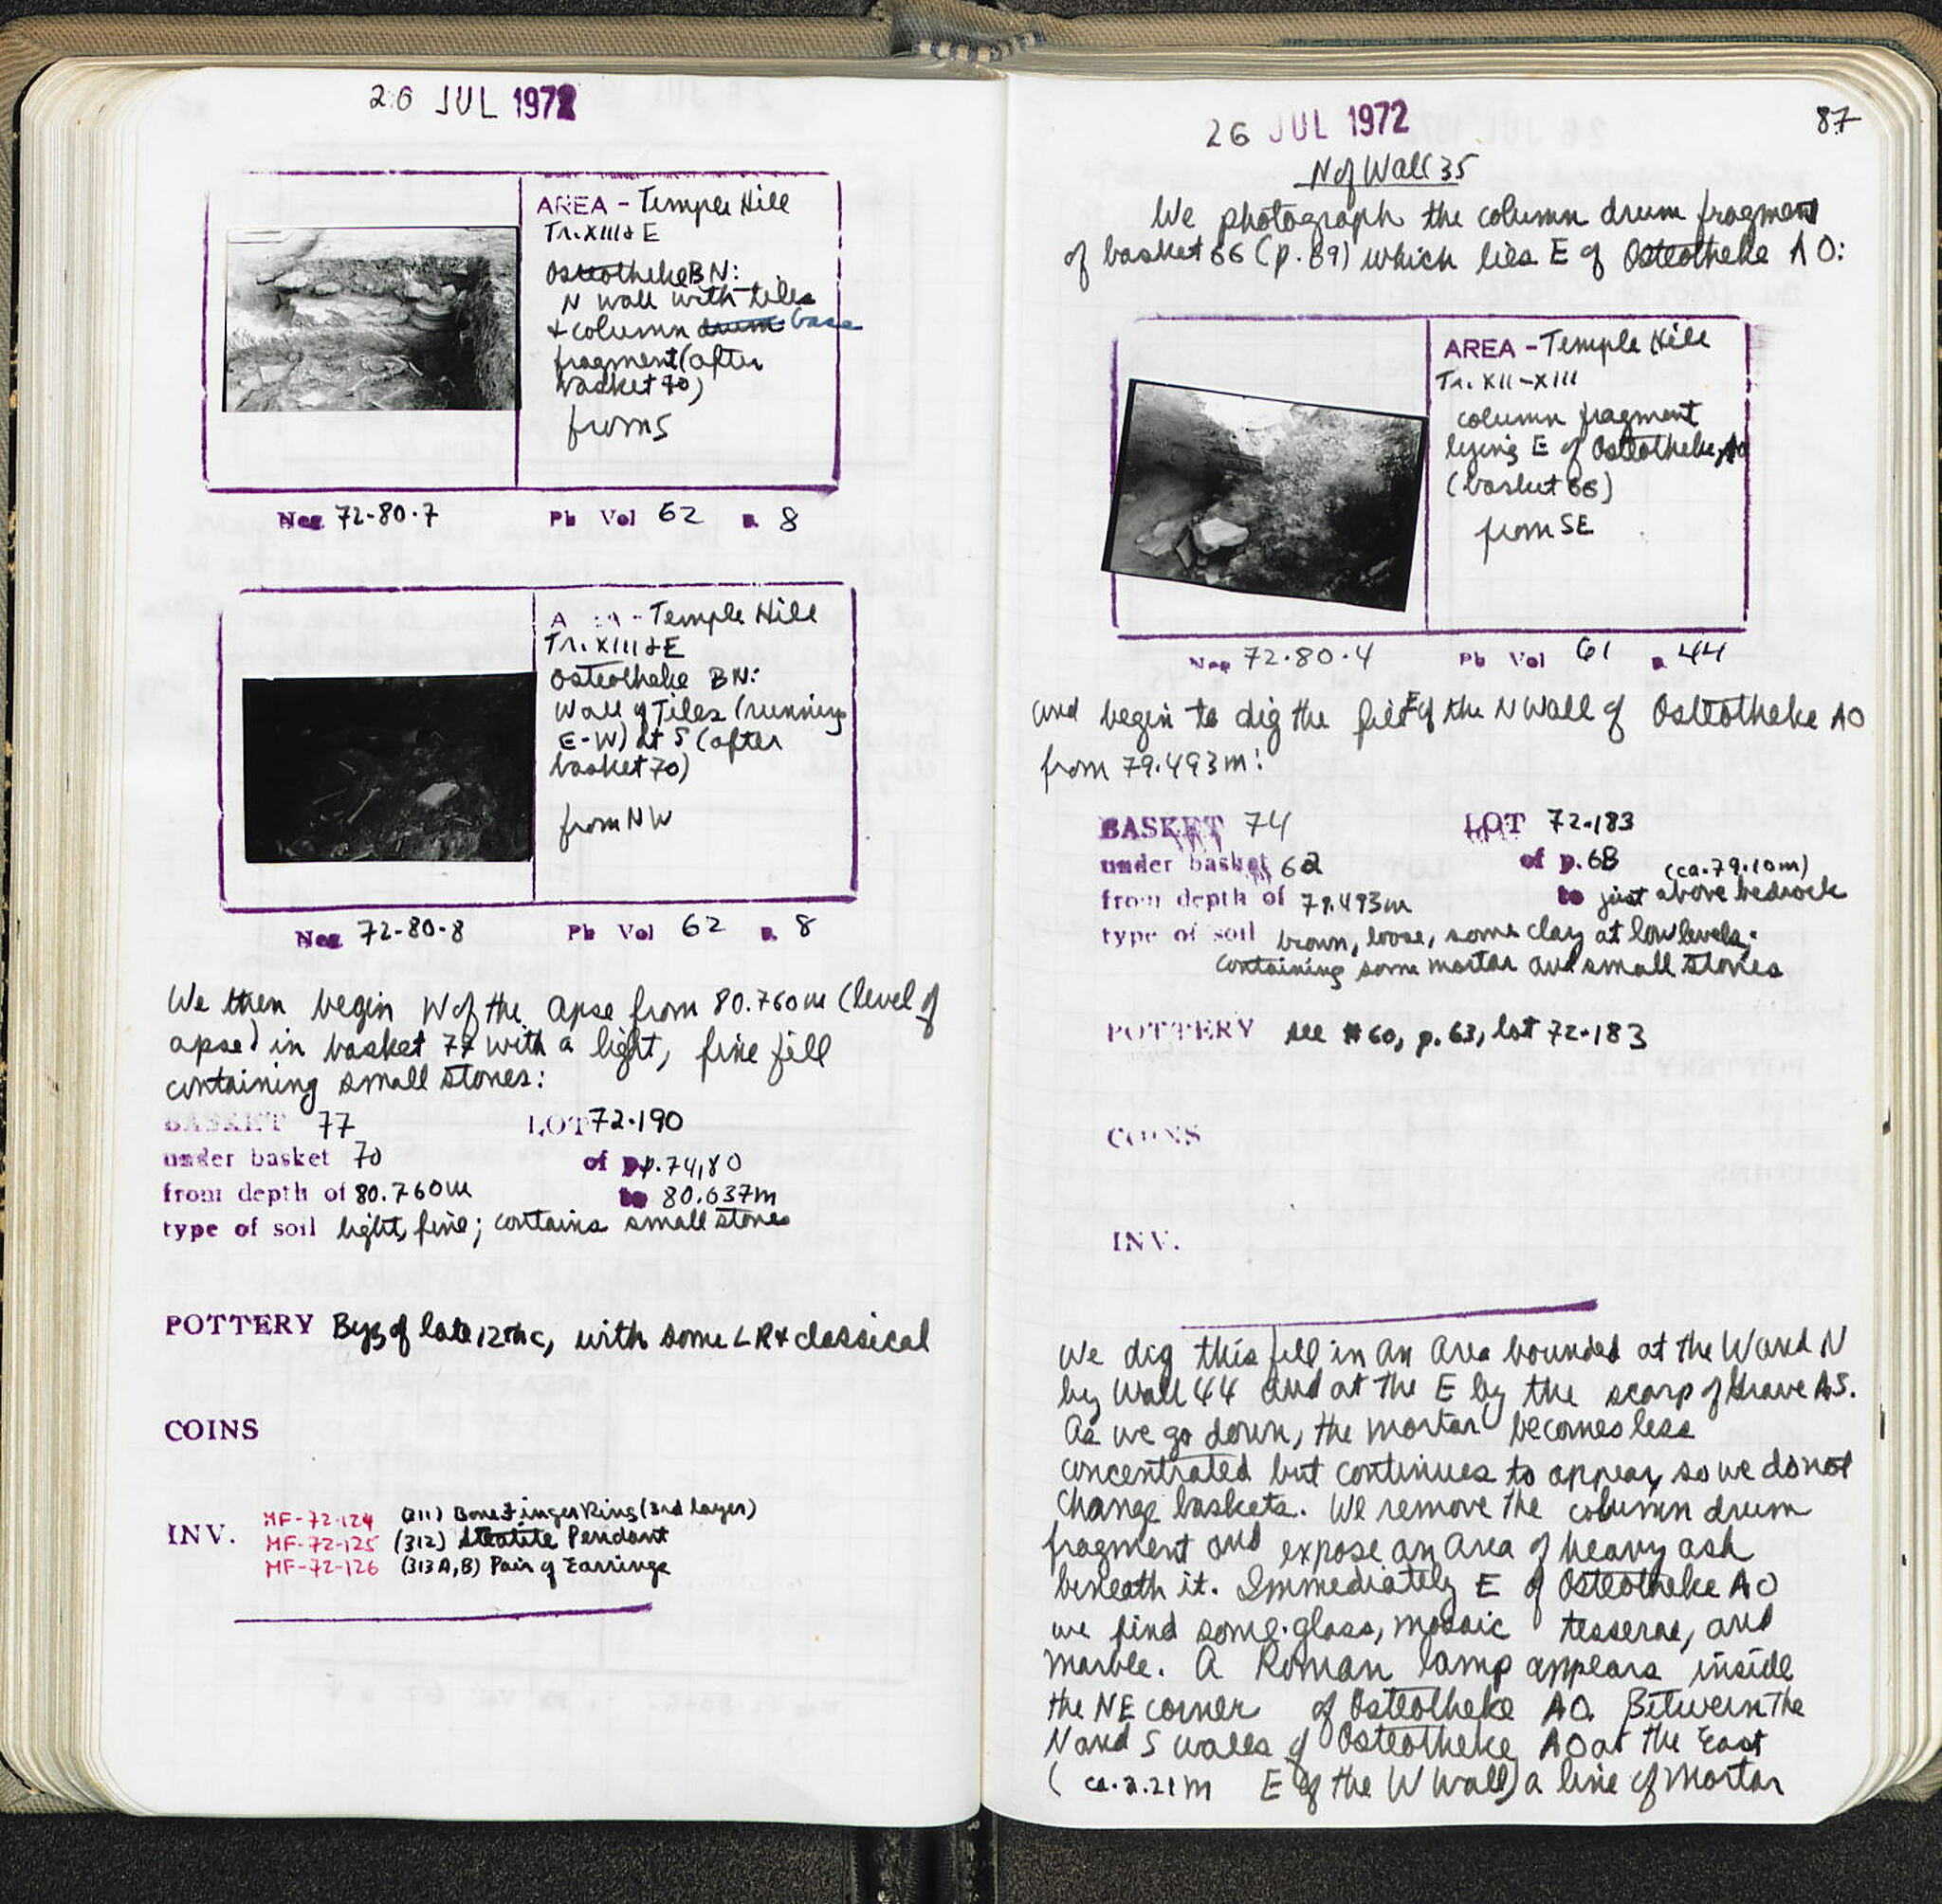 26 JUL 1972
AREA - Temple Hill
Tr. XIII & E
Osteotheke BN:
N wall with tiles
+ column drum base
fragment (after
basket 70)
from S
Neg 72-80-7 Pb Vol 62 p. 8
AREA - Temple Hill
Tr. XIII & E
Osteotheke BN:
Wall of Tiles (running
E-W) at S (after
basket 70)
from NW
Neg 72-80-8 Pb Vol 62 p. 8
We then begin W of the apse from 80.760m (level of
apse) in basket 77 with a light, fine fill
containing small stones:
BASKET 77 LOT 72-190
under basket 70 of pp. 74, 80
from depth of 80.760m to 80.637m
type of soil light, fine; contains small stones
POTTERY Byz of late 12th c, with some LR + classical
COINS
INV. MF-72-124 (311) Bone Finger Ring (3rd layer)
MF-72-125 (312) Steatite Pendant
MF-72-126 (313 A, B) Pair of Earrings
87
26 JUL 1972
N of Wall 35
We photograph the column drum fragment
of basket 66 (p. 69) which lies E of Osteotheke AO:
AREA - Temple Hill
Tr. XII-XIII
column fragment
lying E of Osteotheke AO
(basket 66)
from SE
Neg 72-80-4 Pb Vol 61 p. 44
and begin to dig the fill E of the N Wall of Osteotheke AO
from 79.493m:
BASKET 74 LOT 72-183
under basket 62 of p. 68
from depth of 79.493m to just above bedrock (ca. 79.10m)
type of soil brown, loose, some clay at low levels;
containing some mortar and small stones
POTTERY see #60, p. 63, lot 72-183
COINS
INV.
We dig this fill in an area bounded at the W and N
by Wall 44 and at the E by the scarp of Grave AS.
As we go down, the mortar becomes less
concentrated but continues to appear, so we do not
change baskets. We remove the column drum
fragment and expose an area of heavy ash
beneath it. Immediately E of Osteotheke AO
we find some glass, mosaic tesserae, and
marble. A Roman lamp appears inside
the NE corner of Osteotheke AO. Between the
N and S walls of Osteotheke AO at the East
(ca. 2.21m E of the W wall) a line of mortar